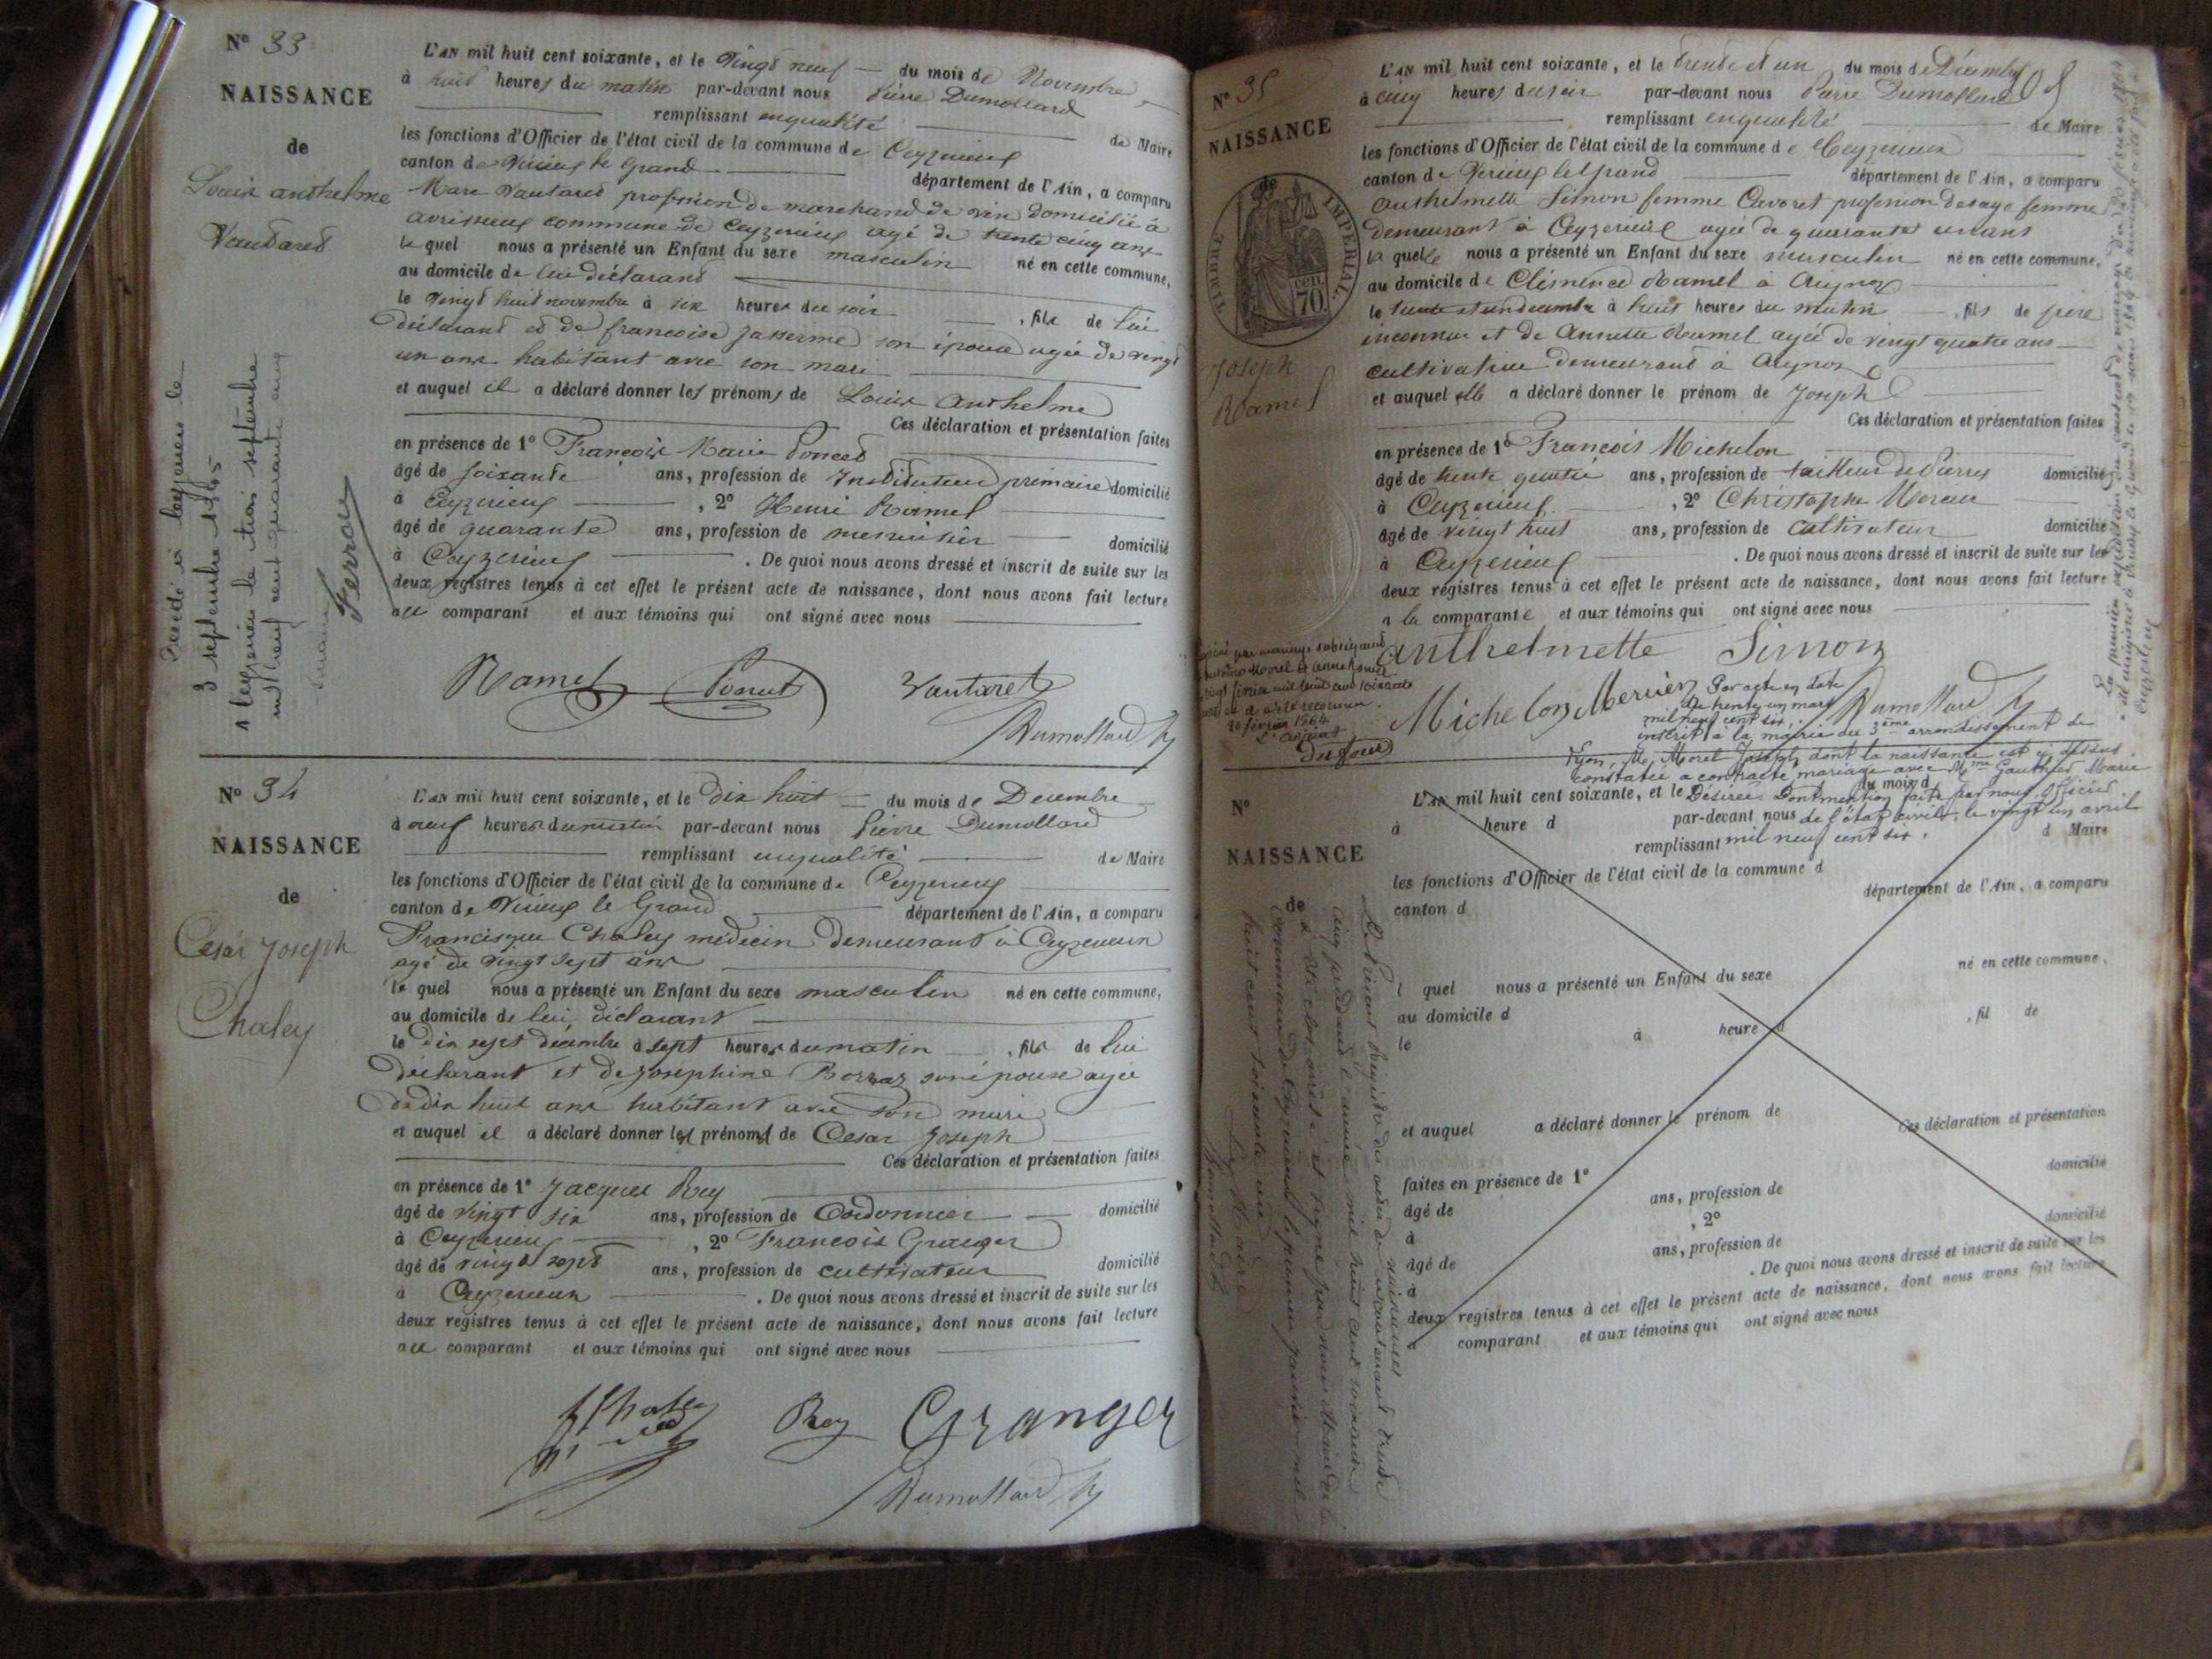 N° 33
NAISSANCE
de
Louis anthelme
Vautaret
L'AN mil huit cent soixante, et le Vingt neuf du mois de Novembre
à huit heures du matin par-devant nous Pierre Dumollard
remplissant enqualité de Maire
les fonctions d'Officier de l'état civil de la commune de Ceyzerieux
canton de Virieux le Grand département de l'Ain, a comparu
Marc Vautaret profession de marchand de vin domicilié à
avrissieux commune de Ceyzerieux agé de trente cinq ans
le quel nous a présenté un Enfant du sexe masculin né en cette commune,
au domicile de lui déclarant
le Vingt huit novembre à six heures du soir , fils de lui
déclarant et de francoise Jasserme son épouse agée de vingt
un ans habitant avec son mari
et auquel il a déclaré donner les prénoms de Louis Anthelme
Ces déclaration et présentation faites
en présence de 1° François Marie Poncet
âgé de soixante ans, profession de Instituteur primaire domicilié
à Ceyzerieux , 2° Henri Ramel
âgé de quarante ans, profession de menuisier domicilié
à Ceyzerieux . De quoi nous avons dressé et inscrit de suite sur les
deux registres tenus à cet effet le présent acte de naissance, dont nous avons fait lecture
au comparant et aux témoins qui ont signé avec nous
Ramel Poncet Vautaret
Dumollard
Décédé à Ceyzerieu le
3 septembre 1945
à Ceyzerieu le trois septembre
mil neuf cent quarante cinq
Ferrou
N° 34
NAISSANCE
de
César Joseph
Chaley
L'AN mil huit cent soixante, et le dix huit du mois de Decembre
à neuf heures du matin par-devant nous Pierre Dumollard
remplissant enqualité de Maire
les fonctions d'Officier de l'état civil de la commune de Ceyzerieux
canton de Virieux le Grand département de l'Ain, a comparu
Francisque Chaley médecin demeurant à Ceyzerieux
agé de vingt sept ans
le quel nous a présenté un Enfant du sexe masculin né en cette commune,
au domicile de lui déclarant
le dix sept décembre à sept heures du matin , fils de lui
déclarant et de Josephine Borraz son épouse agée
de dix huit ans habitant avec son mari
et auquel il a déclaré donner les prénoms de César Joseph
Ces déclaration et présentation faites
en présence de 1° Jacques Rey
âgé de vingt six ans, profession de Cordonnier domicilié
à Ceyzerieux , 2° François Granger
âgé de vingt sept ans, profession de cultivateur domicilié
à Ceyzerieux . De quoi nous avons dressé et inscrit de suite sur les
deux registres tenus à cet effet le présent acte de naissance, dont nous avons fait lecture
au comparant et aux témoins qui ont signé avec nous
Chaley Rey Granger
Dumollard
N° 35
NAISSANCE
de
TIMBRE IMPERIAL
70 cen.
Joseph
Ramel
L'AN mil huit cent soixante, et le trente et un du mois de Décembre
à cinq heures du soir par-devant nous Pierre Dumollard
remplissant enqualité de Maire
les fonctions d'Officier de l'état civil de la commune de Ceyzerieux
canton de Virieux le Grand département de l'Ain, a comparu
Anthelmette Simon femme Cavoret profession de sage femme
demeurant à Ceyzerieux agée de quarante un ans
la quelle nous a présenté un Enfant du sexe masculin né en cette commune,
au domicile de Clémence Ramel à Aignoz
le trente et un decembre à huit heures du matin , fils de père
inconnu et de Annette Ramel agée de vingt quatre ans
cultivatrice demeurant à Aignoz
et auquel elle a déclaré donner le prénom de Joseph
Ces déclaration et présentation faites
en présence de 1° François Michelon
âgé de trente quatre ans, profession de tailleur de Pierres domicilié
à Ceyzerieux , 2° Christophe Mercier
âgé de vingt huit ans, profession de cultivateur domicilié
à Ceyzerieux . De quoi nous avons dressé et inscrit de suite sur les
deux registres tenus à cet effet le présent acte de naissance, dont nous avons fait lecture
à la comparante et aux témoins qui ont signé avec nous
anthelmette Simon
Michelon Mercier Dumollard
Par acte en date
du trente un mars
mil neuf cent six,
inscrit à la mairie du 3ème arrondissement de
Lyon, Mr Morel Joseph dont la naissance est ci dessus
constatée a contracté mariage avec Mme Gauthier Marie
Désirée. Dont mention faite par nous, officier
de l'état civil, le vingt un avril
mil neuf cent six.
N°
NAISSANCE
de
L'AN mil huit cent soixante, et le du mois d
à heure d par-devant nous
remplissant d Maire
les fonctions d'Officier de l'état civil de la commune d
canton d département de l'Ain, a comparu
l quel nous a présenté un Enfant du sexe né en cette commune,
au domicile d
le à heure d , fil de
et auquel a déclaré donner le prénom de
Ces déclaration et présentation
faites en présence de 1°
âgé de ans, profession de domicilié
à , 2°
âgé de ans, profession de domicilié
à . De quoi nous avons dressé et inscrit de suite sur les
deux registres tenus à cet effet le présent acte de naissance, dont nous avons fait lecture
a comparant et aux témoins qui ont signé avec nous
Le Présent Régistre des actes de naissances